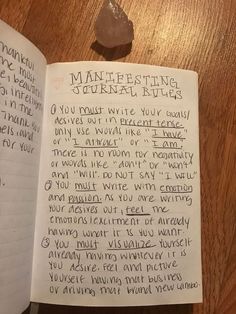 thankful
the most
e, beautiful
in the
Thank you
els, and
for your
MANIFESTING
JOURNAL RULES
① YOU must write your goals/
desires out in present tense-
only use words like "I have"
or "I attract" or "I am"
There is no room for negativity
or words like "don't" or "won't"
and "will". DO NOT SAY "I WILL"
② YOU must write with emotion
and passion. As you are writing
your desires out, feel the
emotions/excitment of already
having what it is you want.
③ YOU must visualize yourself
already having whatever it is
you desire. Feel and picture
yourself having that business
or driving that brand new Lambo.